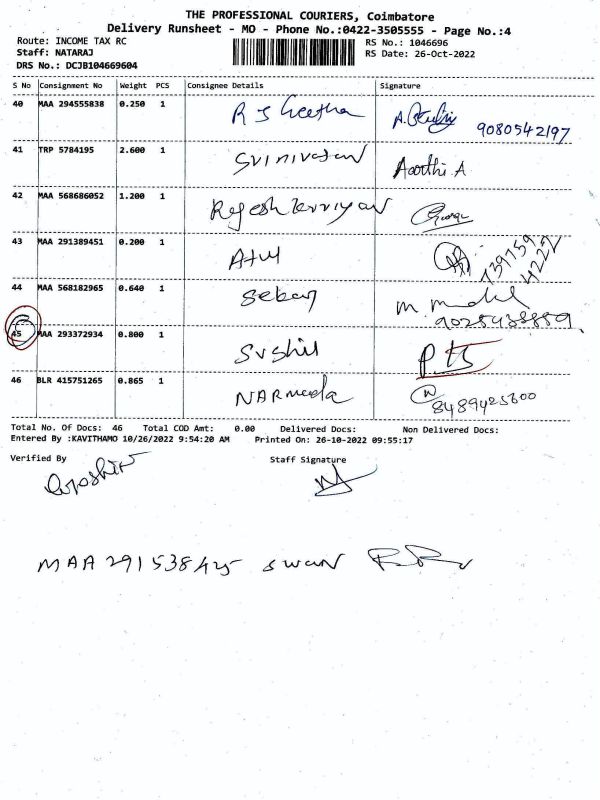 THE PROFESSIONAL COURIERS, Coimbatore
Delivery Runsheet - MO - Phone No.:0422-3505555 - Page No.:4
Route: INCOME TAX RC RS No.: 1046696
Staff: NATARAJ RS Date: 26-Oct-2022
DRS No.: DCJB104669604
S No Consignment No Weight PCS Consignee Details Signature
40 MAA 294555838 0.250 1 R S Geetha 9080542197
41 TRP 5784195 2.600 1 Srinivasan Aarthi.A
42 MAA 568686052 1.200 1
43 MAA 291389451 0.200 1 Atul 739759 4222
44 MAA 568182965 0.640 1 Seban
45 MAA 293372934 0.800 1 Sushil
46 BLR 415751265 0.865 1 NARmeda 8489425600
Total No. Of Docs: 46 Total COD Amt: 0.00 Delivered Docs: Non Delivered Docs:
Entered By :KAVITHAMO 10/26/2022 9:54:20 AM Printed On: 26-10-2022 09:55:17
Verified By Staff Signature
MAA 291538425 swan